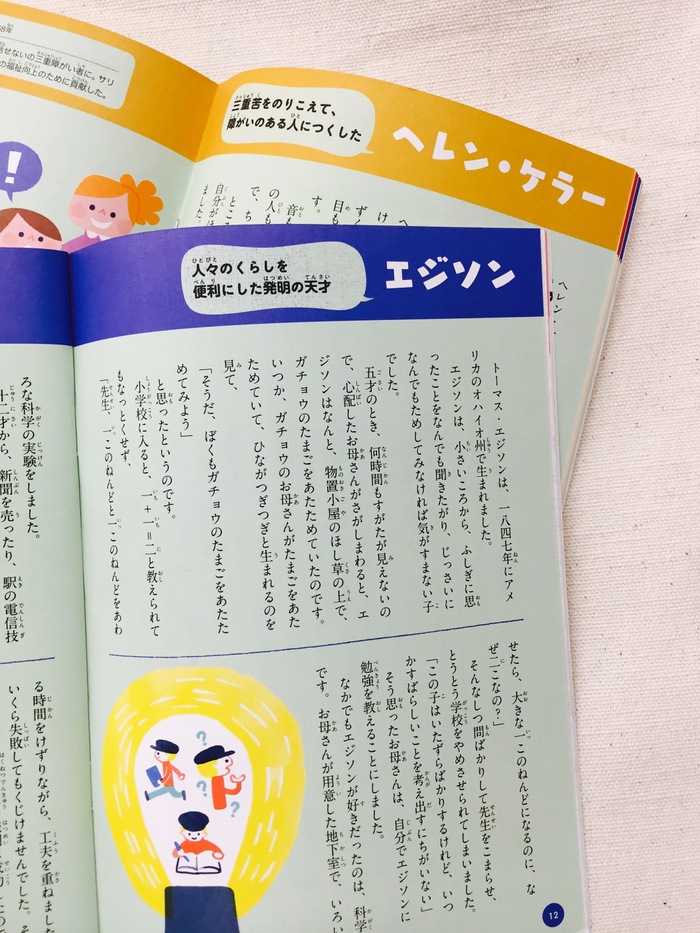 三重苦をのりこえて、
障がいのある人につくした
ヘレン・ケラー
68年
話せないの三重障がい者に。サリ
の福祉向上のために貢献した。
!
人々のくらしを
便利にした発明の天才
エジソン
トーマス・エジソンは、一八四七年にアメ
リカのオハイオ州で生まれました。
エジソンは、小さいころから、ふしぎに思
ったことをなんでも聞きたがり、じっさいに
なんでもためしてみなければ気がすまない子
でした。
五才のとき、何時間もすがたが見えないの
で、心配したお母さんがさがしまわると、エ
ジソンはなんと、物置小屋のほし草の上で、
ガチョウのたまごをあたためていたのです。
いつか、ガチョウのお母さんがたまごをあた
ためていて、ひながつぎつぎと生まれるのを
見て、
「そうだ、ぼくもガチョウのたまごをあたた
めてみよう」
と思ったというのです。
小学校に入ると、一+一=二と教えられて
もなっとくせず、
「先生、一このねんどと一このねんどをあわ
せたら、大きな一このねんどになるのに、な
ぜ二こなの?」
そんなしつ問ばかりして先生をこまらせ、
とうとう学校をやめさせられてしまいました。
「この子はいたずらばかりするけれど、いつ
かすばらしいことを考え出すにちがいない」
そう思ったお母さんは、自分でエジソンに
勉強を教えることにしました。
なかでもエジソンが好きだったのは、科学
です。お母さんが用意した地下室で、いろい
? ? ?
12
ろな科学の実験をしました。
十二才から、新聞を売ったり、駅の電信技
る時間をけずりながら、工夫を重ねました
いくら失敗してもくじけませんでした。そ